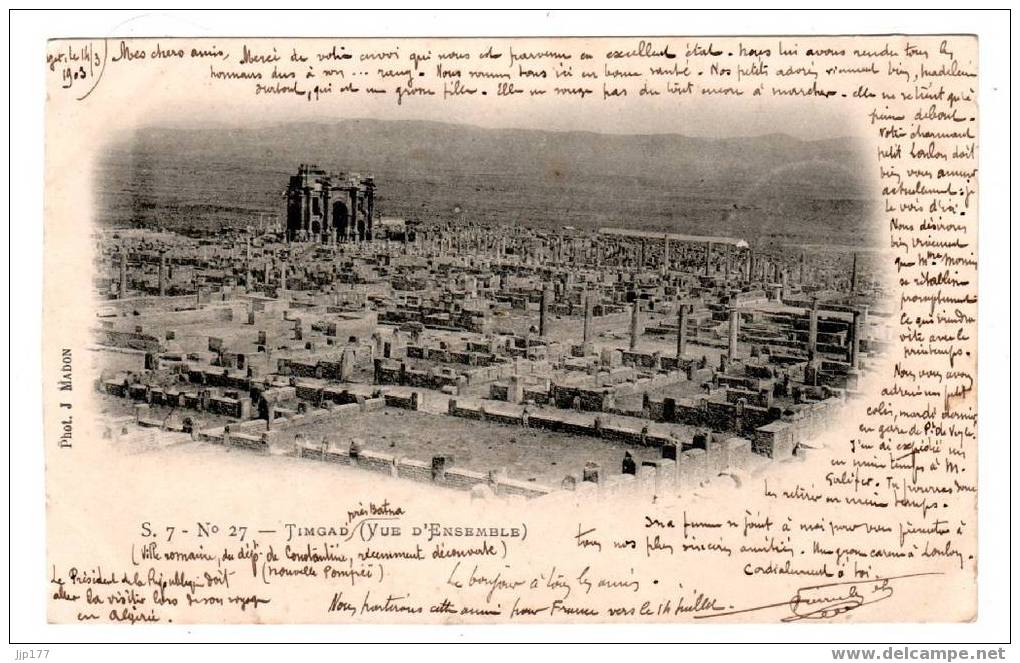 le 14/3
1903
Mes chers amis, Merci de votre envoi qui nous est parvenu en excellent état. Nous lui avons rendu tous les
honneurs dus à son ... rang. Nous sommes tous ici en bonne santé. Nos petits adorés viennent bien, Madelein
surtout, qui est une grosse fille. Elle ne bouge pas du tout encore à marcher. elle ne se tient qu'à
peine debout.
Votre charmant
petit Loulou doit
bien vous amuser
actuellement: je
le vois d'ici.
Nous désirons
bien vivement
que Mme Morin
se rétablisse
promptement
Ce qui viendra
vite avec le
printemps.
Nous vous avons
adressé un petit
colis, mardi dernier
en gare de
J'en ai expédié un
en même temps à M.
Galifer. Tu pourras donc
les retirer en même temps.
Ma femme se joint à moi pour vous présenter à
tous nos plus sincères amitiés. Une grosse caresse à Loulou.
Cordialement à toi
Phot. J Madon
près Batna
S. 7 - No 27 — Timgad (Vue d'Ensemble)
(Ville romaine, du dépt de Constantine, récemment découverte)
(nouvelle Pompeï)
Le Président de la République doit
aller la visiter lors de son voyage
en Algérie.
Le bonjour à tous les amis.
Nous partirons cette année pour France vers le 14 juillet.
jjp177
http://www.delcampe.net